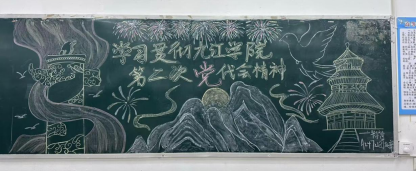 学习贯彻九江学院
第二次党代会精神